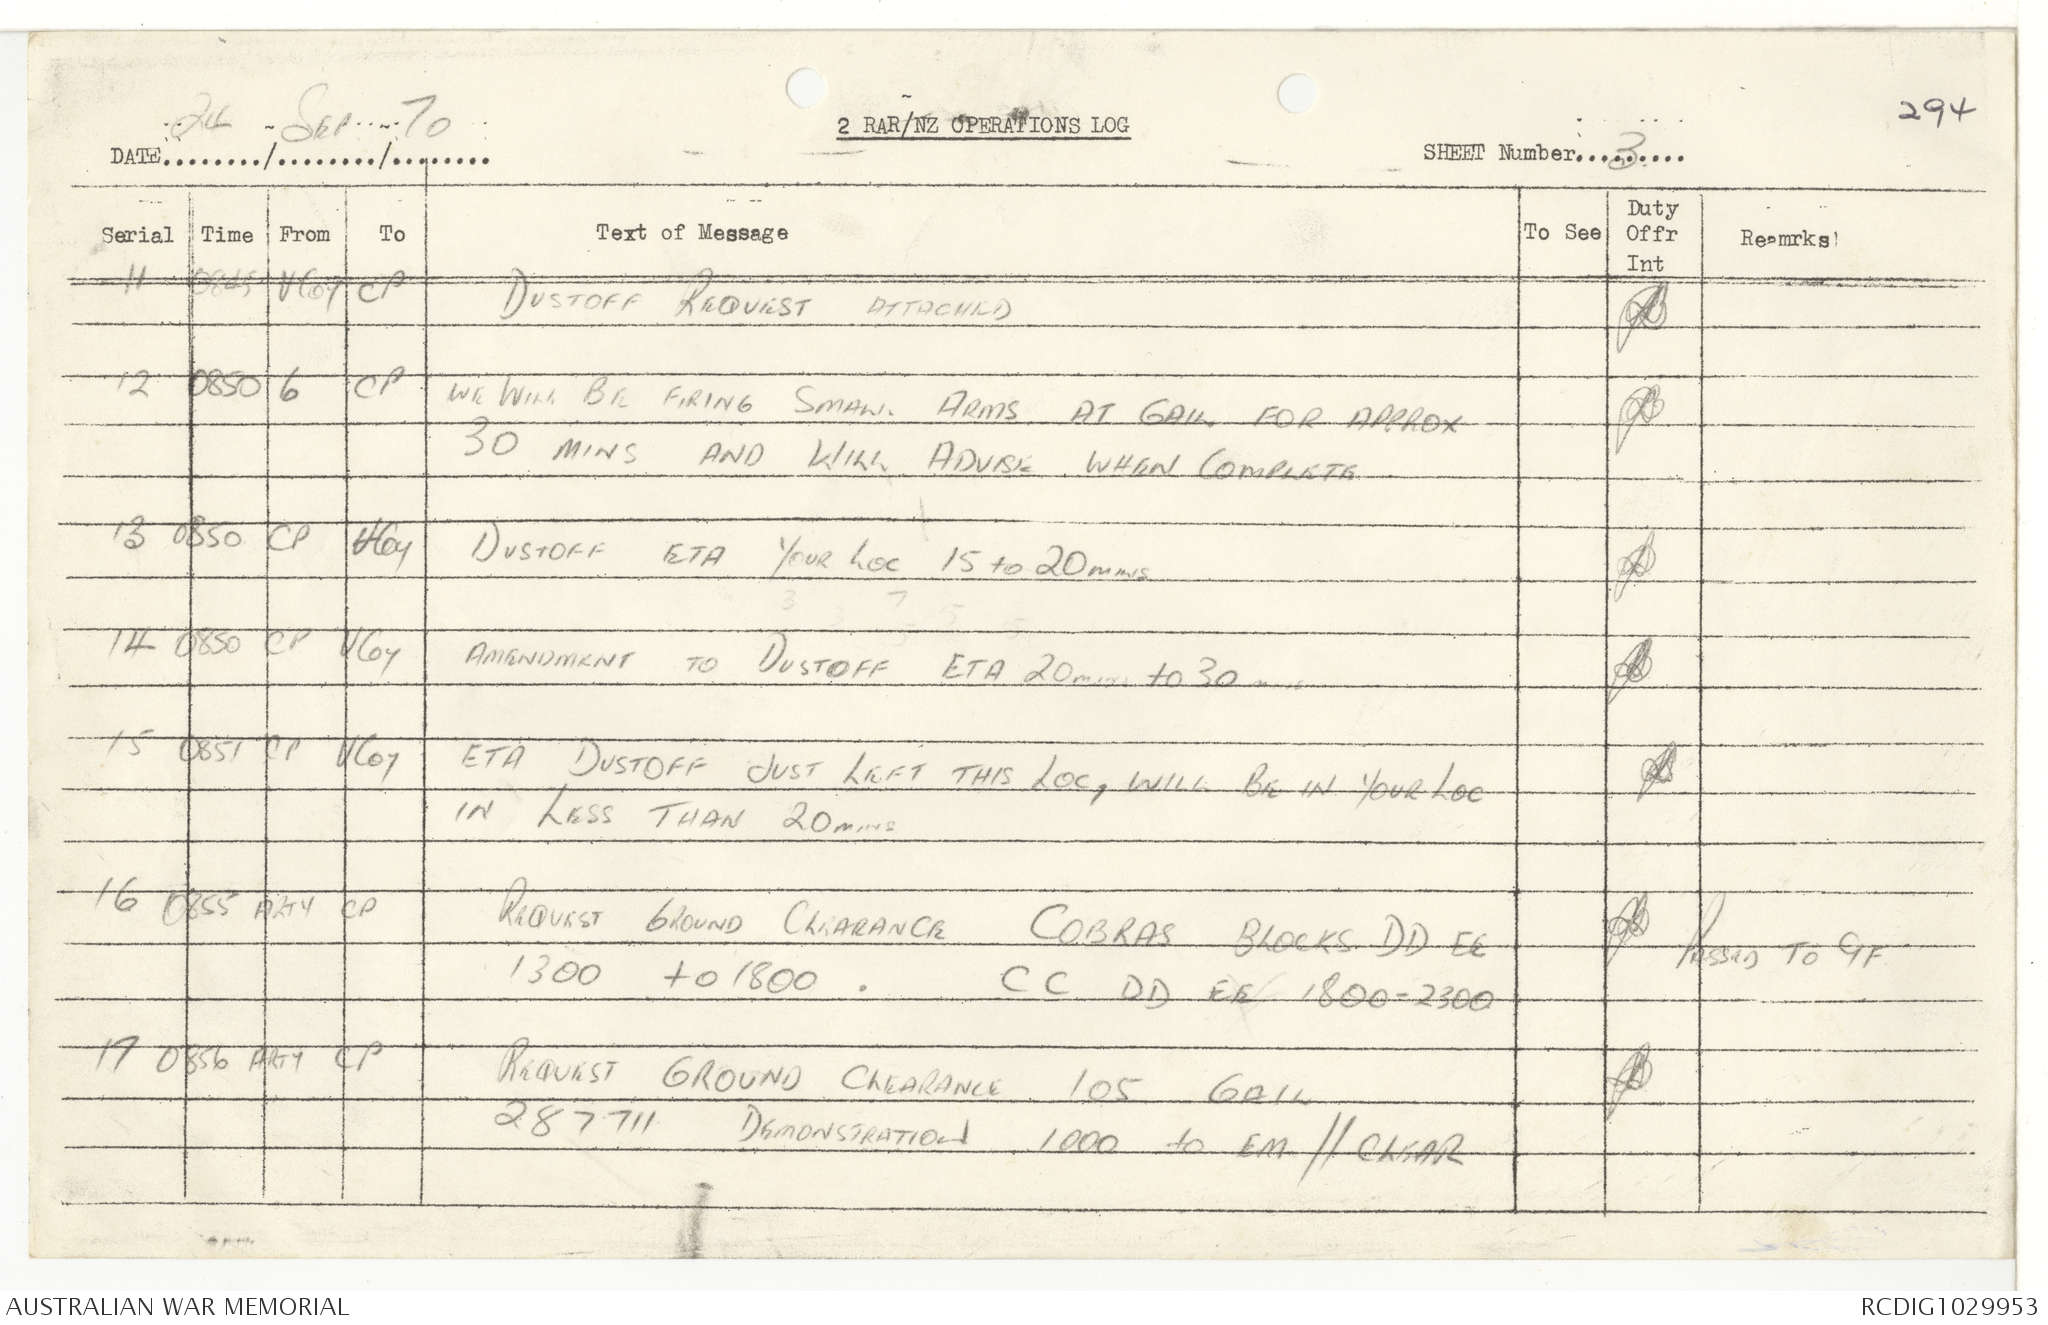 294
24 Sep 70
2 RAR/NZ OPERATIONS LOG
DATE......../......../........
SHEET Number....3.....
Serial Time From To Text of Message To See Duty Offr Int Reamrks
11 0845 VCoy CP DUSTOFF REQUEST ATTACHED
12 0850 6 CP WE WILL BE FIRING SMALL ARMS AT GAIL FOR APPROX
30 MINS AND WILL ADVISE WHEN COMPLETE
13 0850 CP VCoy DUSTOFF ETA YOUR LOC 15 to 20 mins
14 0850 CP VCoy AMENDMENT TO DUSTOFF ETA 20 mins to 30 mins
15 0851 CP VCoy ETA DUSTOFF JUST LEFT THIS LOC, WILL BE IN YOUR LOC
IN LESS THAN 20 mins
16 0855 ARTY CP REQUEST GROUND CLEARANCE COBRAS BLOCKS DD EE
PASSED TO GF
1300 to 1800 . CC DD EE 1800-2300
17 0856 ARTY CP REQUEST GROUND CLEARANCE 105 GAIL
287711 DEMONSTRATION 1000 to EM // CLEAR
AUSTRALIAN WAR MEMORIAL
RCDIG1029953